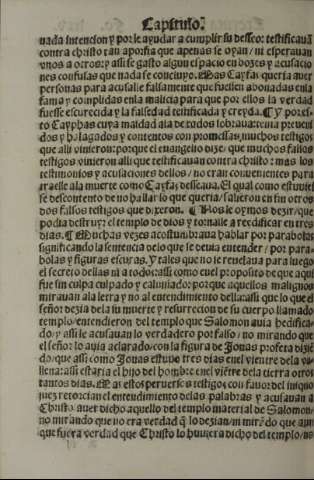 Capitulo.
nada intencion y por le ayudar a cumplir su desseo: testificauā
contra christo tan aporfia que apenas se oyan/ ni esperauan
vnos a otros: y assi se gasto algun espacio en bozes y acusacio
nes confusas que nada se concluyo. Mas Cayfas queria auer
personas para acusalle falsamente que fuessen abonadas en la
fama y complidas en la malicia para que por ellos la verdad
fuesse escurecida y la falsedad testificada y creyda. ¶ Y por es-
to Cayphas cuya maldad a la de todos sobrauatenia preueni
dos y halagados y contentos con promessas muchos testigos
que alli vinieron: porque el euangelio dize/ que muchos falsos
testigos vinieron alli que testificauan contra christo: mas los
testimonios y acusaciones dellos/ no eran conuenientes para
traelle a la muerte como Cayfas desseaua. El qual como estuuies
se descontento de no hallar lo que queria/ salieron en fin otros
dos falsos testigos que dixeron. ¶ Nos le oymos dezir/ que
podia destruyr el templo de dios y tornalle a reedificar en tres
dias. ¶ Muchas vezes acostūbraua hablar por parabolas
significando la sentencia delo que se deuia entender/ por para-
bolas y figuras escuras. Y tales que no se reuelaua para luego
el secreto dellas ni a todos: assi como en el proposito de que aqui
fue sin culpa culpado y caluniado: porque aquellos malignos
mirauan ala letra y no al entendimiento della: assi que lo que el
señor dezia dela su muerte y resurrecion de su cuerpo llamado
templo/ entendieron del templo que Salomon auia hedifica-
do: y assi le acusauan lo verdadero por falso/ no mirando que
el señor lo auia aclarado/ con la figura de Jonas profeta dizié
do: que assi como Jonas estuuo tres dias en el vientre dela va
llena: assi estaria el hijo del hombre en el viētre dela tierra otros
tantos dias. Mas estos peruersos testigos con fauor del iniquo
juez retorcian el entendimiento delas palabras y acusauan a
Christo auer dicho aquello del templo material de Salomon/
no mirando que no era verdad q̄ lo dezian/ ni mirādo que aun
que fuera verdad que Christo lo huuiera dicho del templo/ no